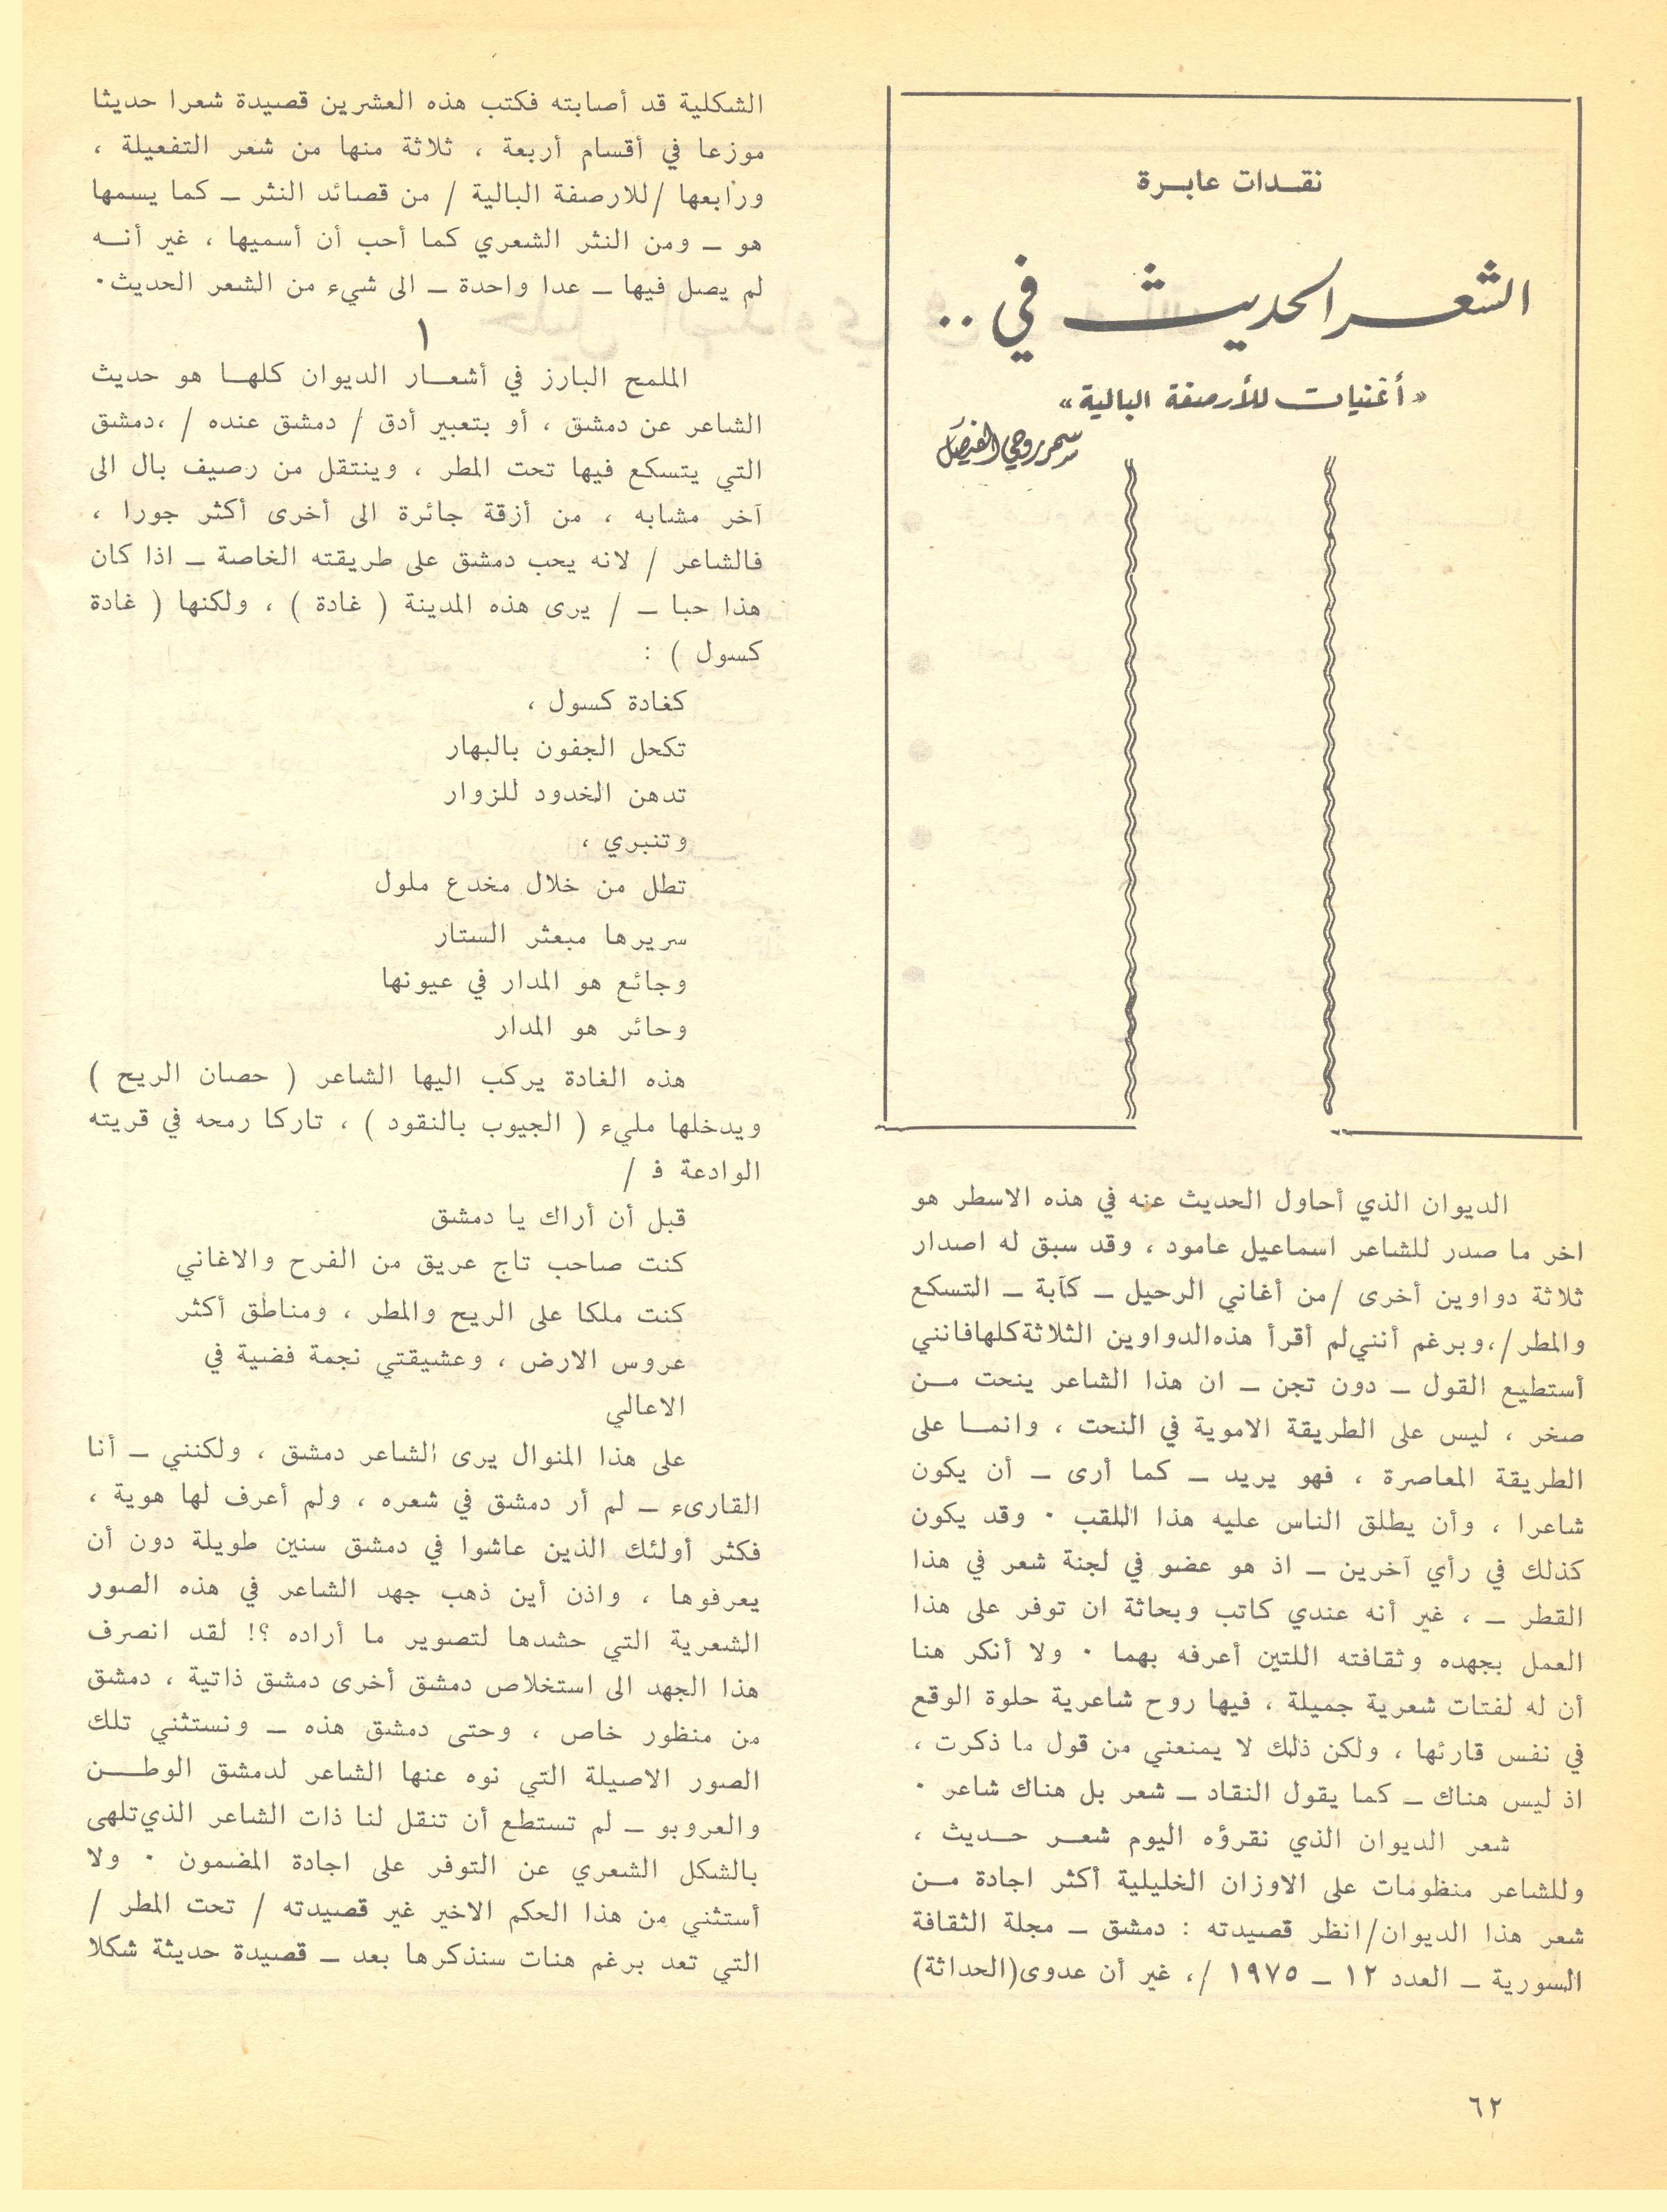 نقدات عابرة
الشعر الحديث في ..
«أغنيات للأرصفة البالية»
سمر روحي الفيصل
الديوان الذي أحاول الحديث عنه في هذه الاسطر هو
اخر ما صدر للشاعر اسماعيل عامود ، وقد سبق له اصدار
ثلاثة دواوين أخرى /من أغاني الرحيل ــ كآبة ــ التسكع
والمطر/،وبرغم أنني لم أقرأ هذه الدواوين الثلاثة كلها فانني
أستطيع القول ــ دون تجن ــ ان هذا الشاعر ينحت مــن
صخر ، ليس على الطريقة الاموية في النحت ، وانمــا على
الطريقة المعاصرة ، فهو يريد ــ كما أرى ــ أن يكون
شاعرا ، وأن يطلق الناس عليه هذا اللقب ٠ وقد يكون
كذلك في رأي آخرين ــ اذ هو عضو في لجنة شعر في هذا
القطر ــ ، غير أنه عندي كاتب وبحاثة ان توفر على هذا
العمل بجهده وثقافته اللتين أعرفه بهما ٠ ولا أنكر هنا
أن له لفتات شعرية جميلة ، فيها روح شاعرية حلوة الوقع
في نفس قارئها ، ولكن ذلك لا يمنعني من قول ما ذكرت ،
اذ ليس هناك ــ كما يقول النقاد ــ شعر بل هناك شاعر ٠
شعر الديوان الذي نقرؤه اليوم شعــر حــديث ،
وللشاعر منظومات على الاوزان الخليلية أكثر اجادة مــن
شعر هذا الديوان/انظر قصيدته : دمشق ــ مجلة الثقافة
السورية ــ العدد ١٢ ــ ١٩٧٥ /، غير أن عدوى(الحداثة)
الشكلية قد أصابته فكتب هذه العشرين قصيدة شعرا حديثا
موزعا في أقسام أربعة ، ثلاثة منها من شعر التفعيلة ،
ورابعها /للارصفة البالية / من قصائد النثر ــ كما يسمها
هو ــ ومن النثر الشعري كما أحب أن أسميها ، غير أنــه
لم يصل فيها ــ عدا واحدة ــ الى شيء من الشعر الحديث٠
١
الملمح البارز في أشعــار الديوان كلهــا هو حديث
الشاعر عن دمشق ، أو بتعبير أدق / دمشق عنده / ،دمشق
التي يتسكع فيها تحت المطر ، وينتقل من رصيف بال الى
آخر مشابه ، من أزقة جائرة الى أخرى أكثر جورا ،
فالشاعر / لانه يحب دمشق على طريقته الخاصة ــ اذا كان
هذا حبا ــ / يرى هذه المدينة ( غادة ) ، ولكنها ( غادة
كسول ) :
كغادة كسول ،
تكحل الجفون بالبهار
تدهن الخدود للزوار
وتنبري ،
تطل من خلال مخدع ملول
سريرها مبعثر الستار
وجائع هو المدار في عيونها
وحائر هو المدار
هذه الغادة يركب اليها الشاعر ( حصان الريح )
ويدخلها مليء ( الجيوب بالنقود ) ، تاركا رمحه في قريته
الوادعة فـ /
قبل أن أراك يا دمشق
كنت صاحب تاج عريق من الفرح والاغاني
كنت ملكا على الريح والمطر ، ومناطق أكثر
عروس الارض ، وعشيقتي نجمة فضية في
الاعالي
على هذا المنوال يرى الشاعر دمشق ، ولكنني ــ أنا
القارىء ــ لم أر دمشق في شعره ، ولم أعرف لها هوية ،
فكثر أولئك الذين عاشوا في دمشق سنين طويلة دون أن
يعرفوها ، واذن أين ذهب جهد الشاعر في هذه الصور
الشعرية التي حشدها لتصوير ما أراده ؟! لقد انصرف
هذا الجهد الى استخلاص دمشق أخرى دمشق ذاتية ، دمشق
من منظور خاص ، وحتى دمشق هذه ــ ونستثني تلك
الصور الاصيلة التي نوه عنها الشاعر لدمشق الوطــن
والعروبو ــ لم تستطع أن تنقل لنا ذات الشاعر الذي تلهى
بالشكل الشعري عن التوفر على اجادة المضمون ٠ ولا
أستثني من هذا الحكم الاخير غير قصيدته / تحت المطر /
التي تعد برغم هنات سنذكرها بعد ــ قصيدة حديثة شكلا
٦٢